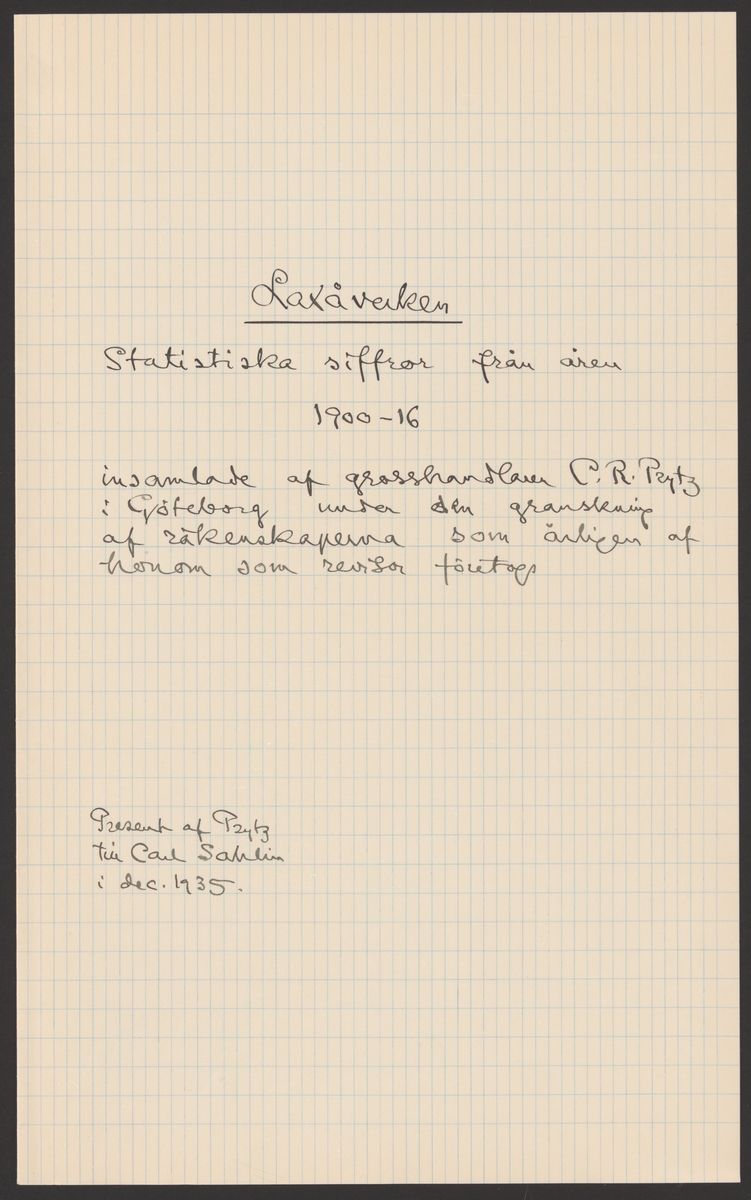 Laxåverken
Statistiska siffror från åren
1900-16
insamlade af grosshandlaren C. R. Prytz
i Göteborg under den granskning
af räkenskaperna som årligen af
honom som revisor företogs
Present af Prytz
till Carl Sahlin
i dec. 1935.